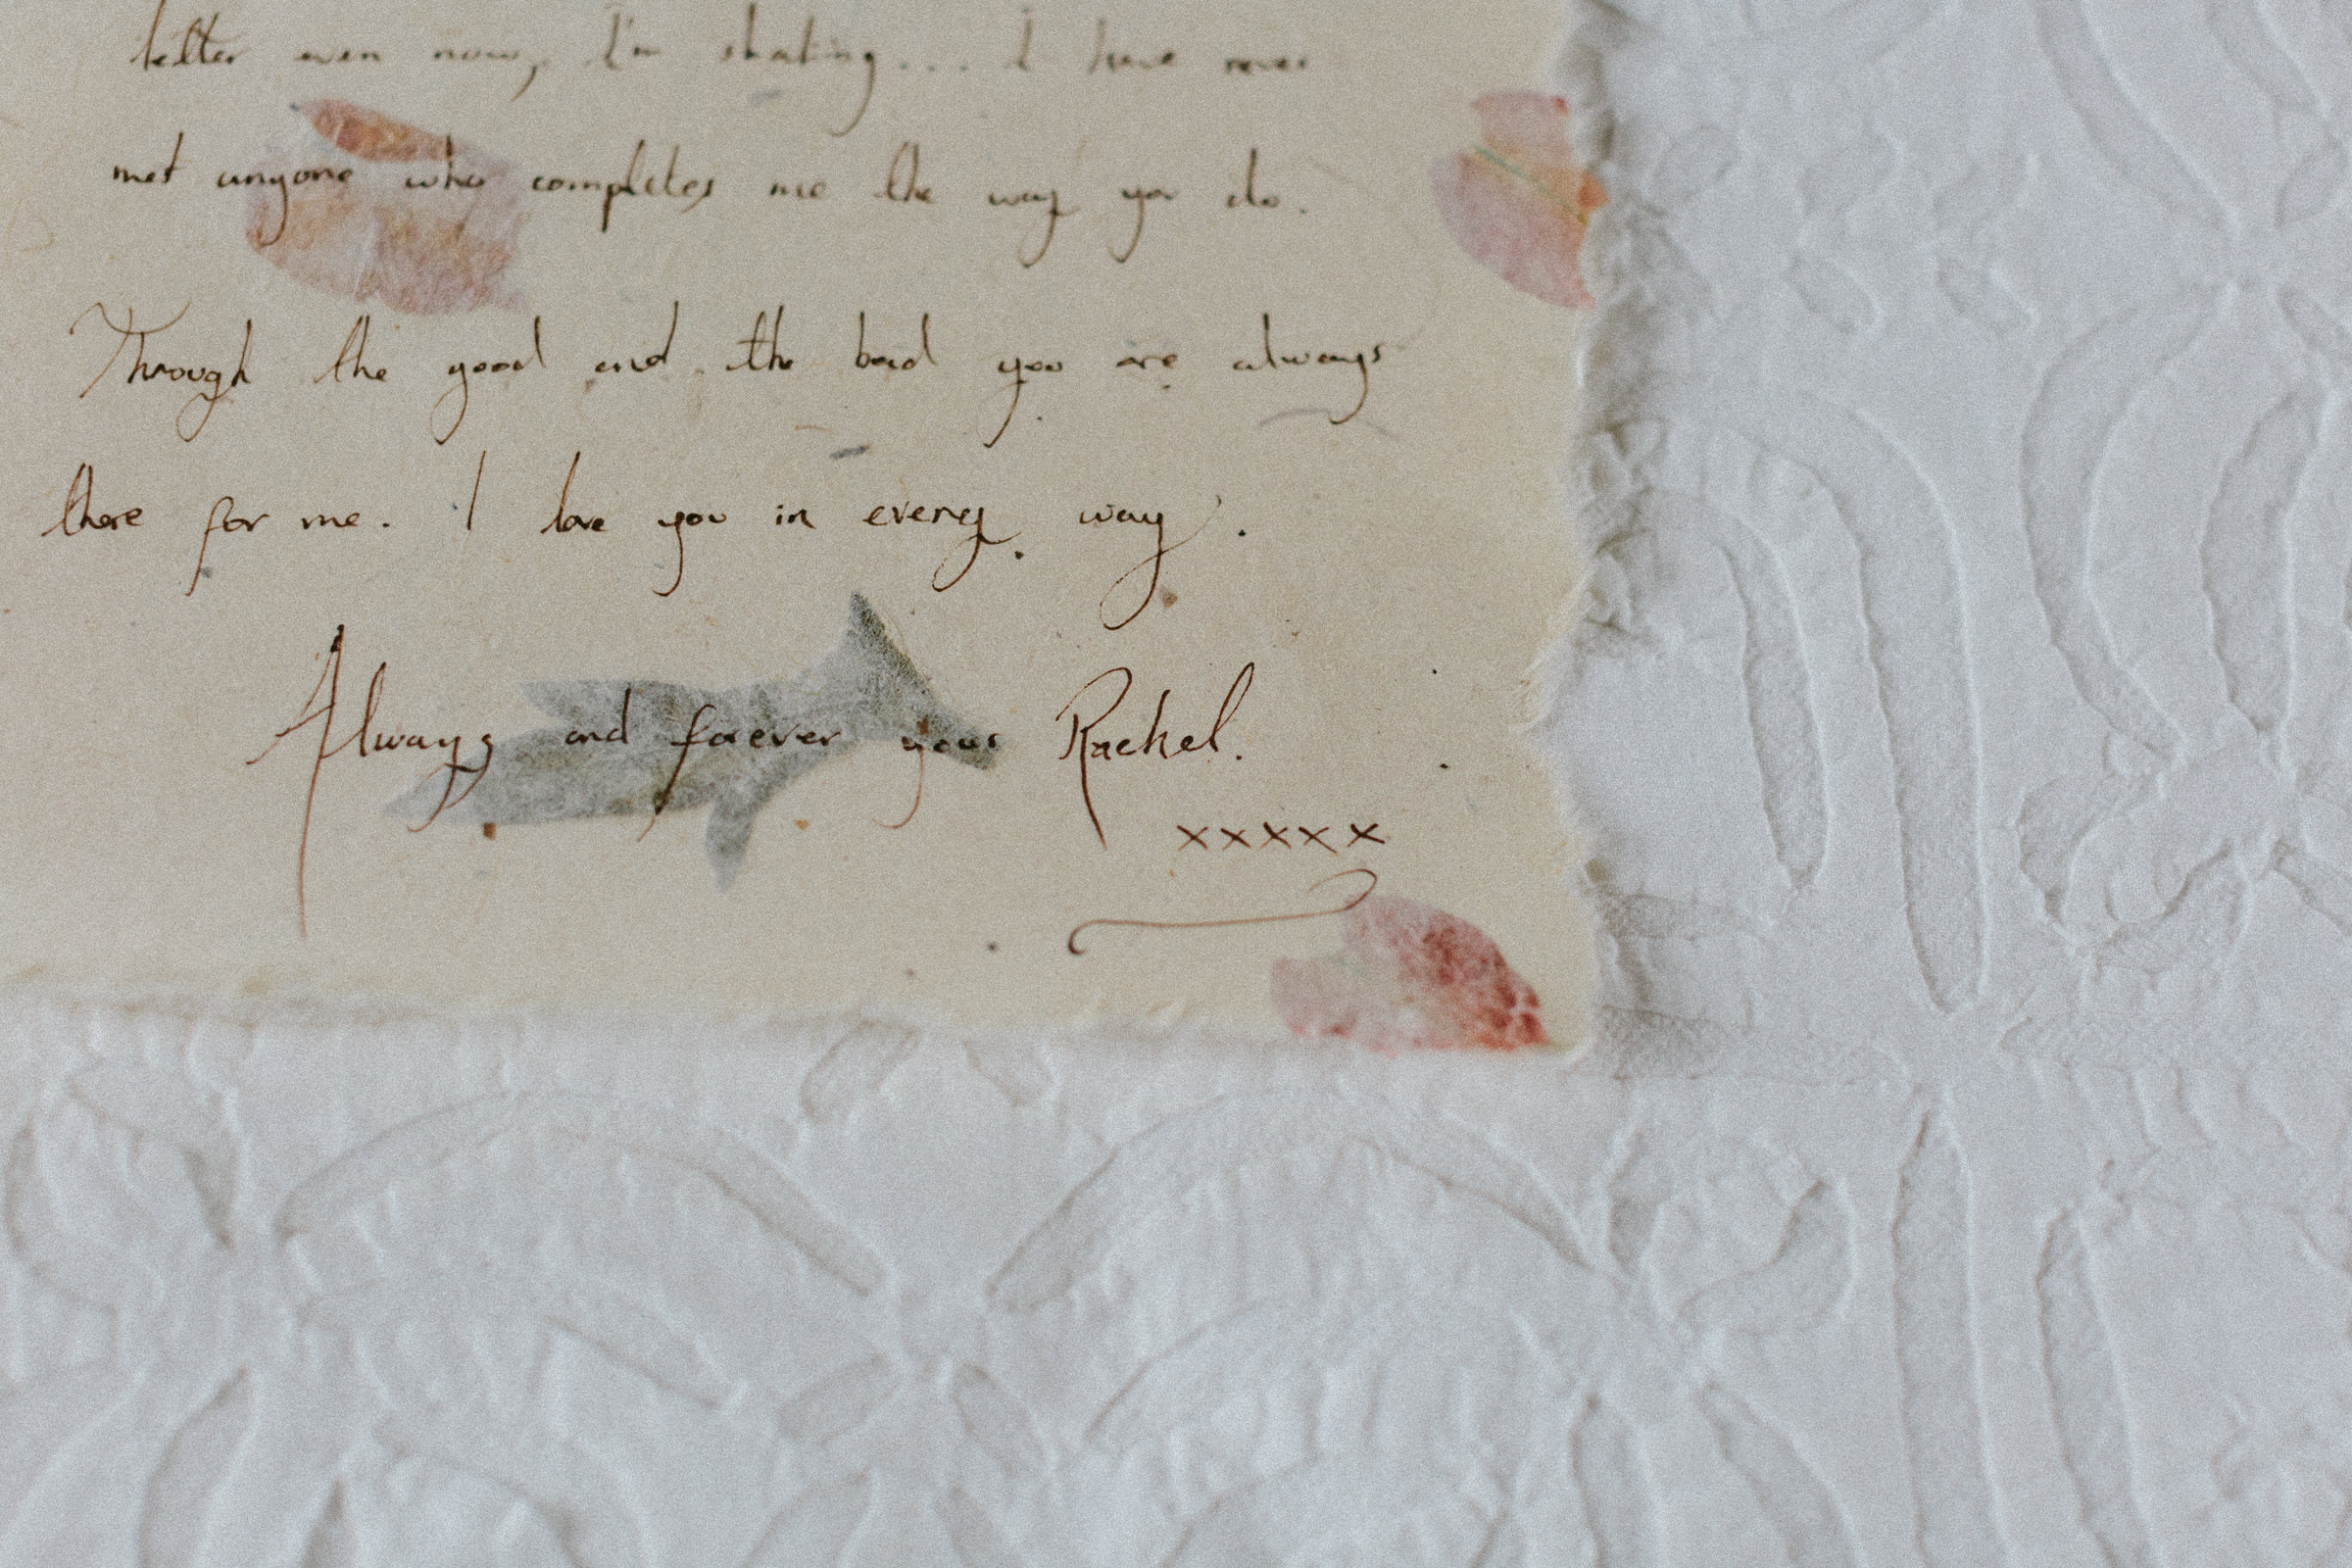 letter even now, I'm shaking... I have never
met anyone who completes me the way you do.
Through the good and the bad you are always
there for me. I love you in every way.
Always and forever yours Rachel.
xxxxx